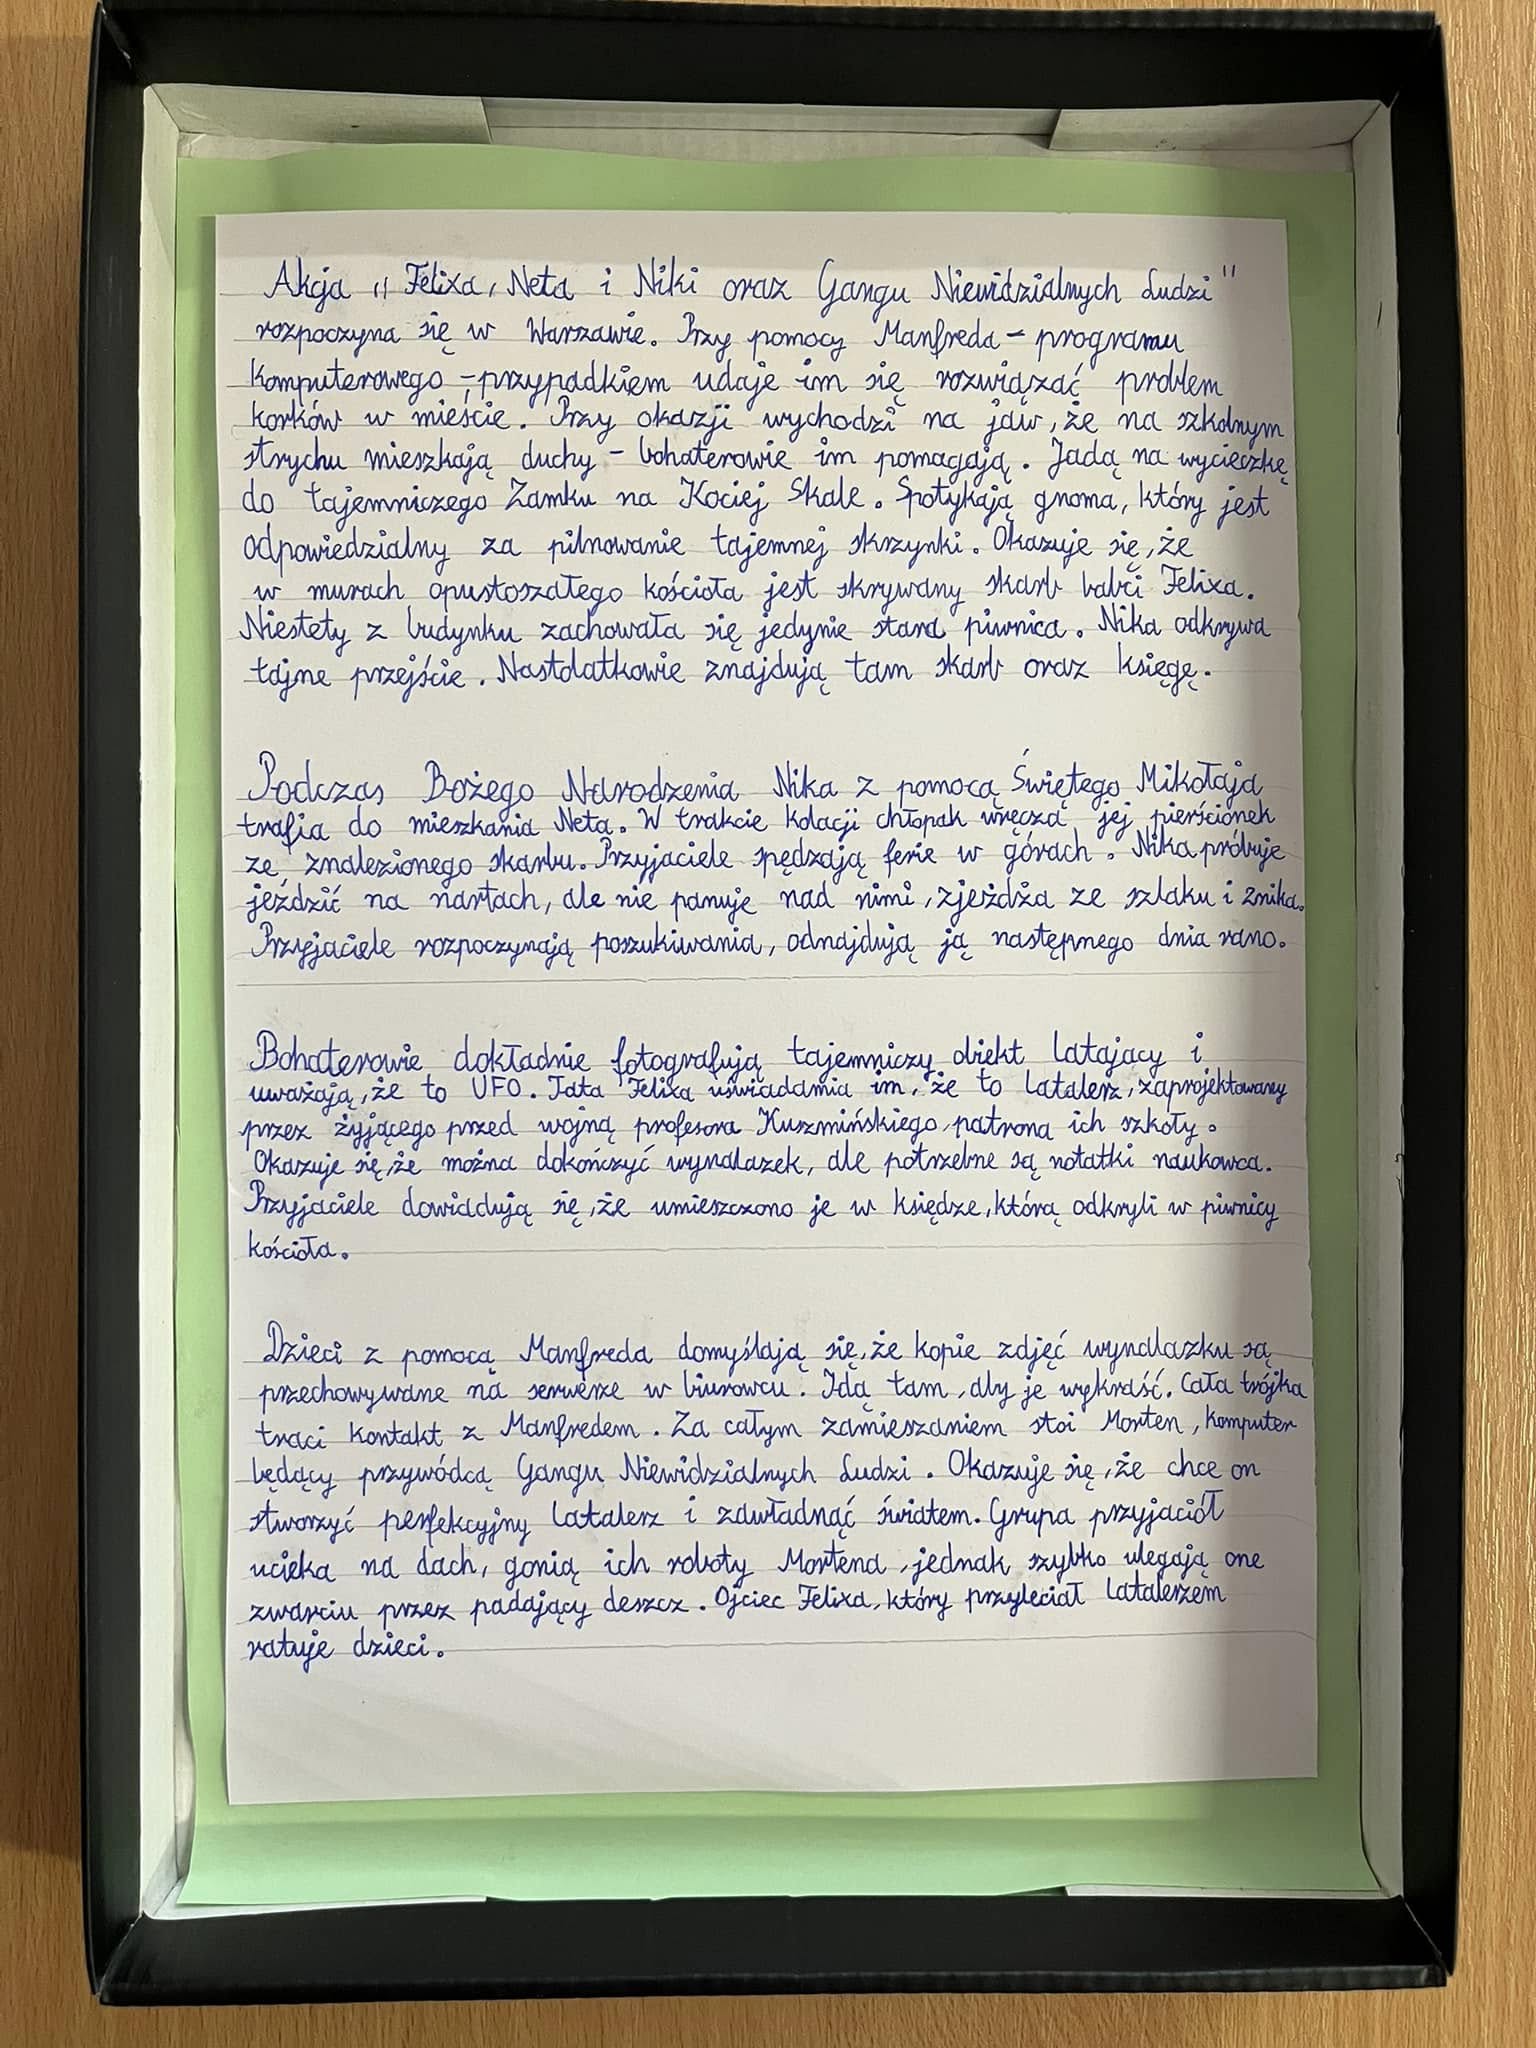 Akcja „Felixa, Neta i Niki oraz Gangu Niewidzialnych Ludzi"
rozpoczyna się w Warszawie. Przy pomocy Manfreda – programu
komputerowego – przypadkiem udaje im się rozwiązać problem
korków w mieście. Przy okazji wychodzi na jaw, że na szkolnym
strychu mieszkają duchy – bohaterowie im pomagają. Jadą na wycieczkę
do tajemniczego Zamku na Kociej Skale. Spotykają gnoma, który jest
odpowiedzialny za pilnowanie tajemnej skrzynki. Okazuje się, że
w murach opustoszałego kościoła jest skrywany skarb babci Felixa.
Niestety z budynku zachowała się jedynie stara piwnica. Nika odkrywa
tajne przejście. Nastolatkowie znajdują tam skarb oraz księgę.
Podczas Bożego Narodzenia Nika z pomocą Świętego Mikołaja
trafia do mieszkania Neta. W trakcie kolacji chłopak wręcza jej pierścionek
ze znalezionego skarbu. Przyjaciele spędzają ferie w górach. Nika próbuje
jeździć na nartach, ale nie panuje nad nimi, zjeżdża ze szlaku i znika.
Przyjaciele rozpoczynają poszukiwania, odnajdują ją następnego dnia rano.
Bohaterowie dokładnie fotografują tajemniczy obiekt latający i
uważają, że to UFO. Tata Felixa uświadamia im, że to latalerz, zaprojektowany
przez żyjącego przed wojną profesora Kuszmińskiego, patrona ich szkoły.
Okazuje się, że można dokończyć wynalazek, ale potrzebne są notatki naukowca.
Przyjaciele dowiadują się, że umieszczono je w księdze, którą odkryli w piwnicy
kościoła.
Dzieci z pomocą Manfreda domyślają się, że kopie zdjęć wynalazku są
przechowywane na serwerze w biurowcu. Idą tam, aby je wykraść. Cała trójka
traci kontakt z Manfredem. Za całym zamieszaniem stoi Morten, komputer
będący przywódcą Gangu Niewidzialnych Ludzi. Okazuje się, że chce on
stworzyć perfekcyjny latalerz i zawładnąć światem. Grupa przyjaciół
ucieka na dach, gonią ich roboty Mortena, jednak szybko ulegają one
zwarciu przez padający deszcz. Ojciec Felixa, który przyleciał latalerzem
ratuje dzieci.